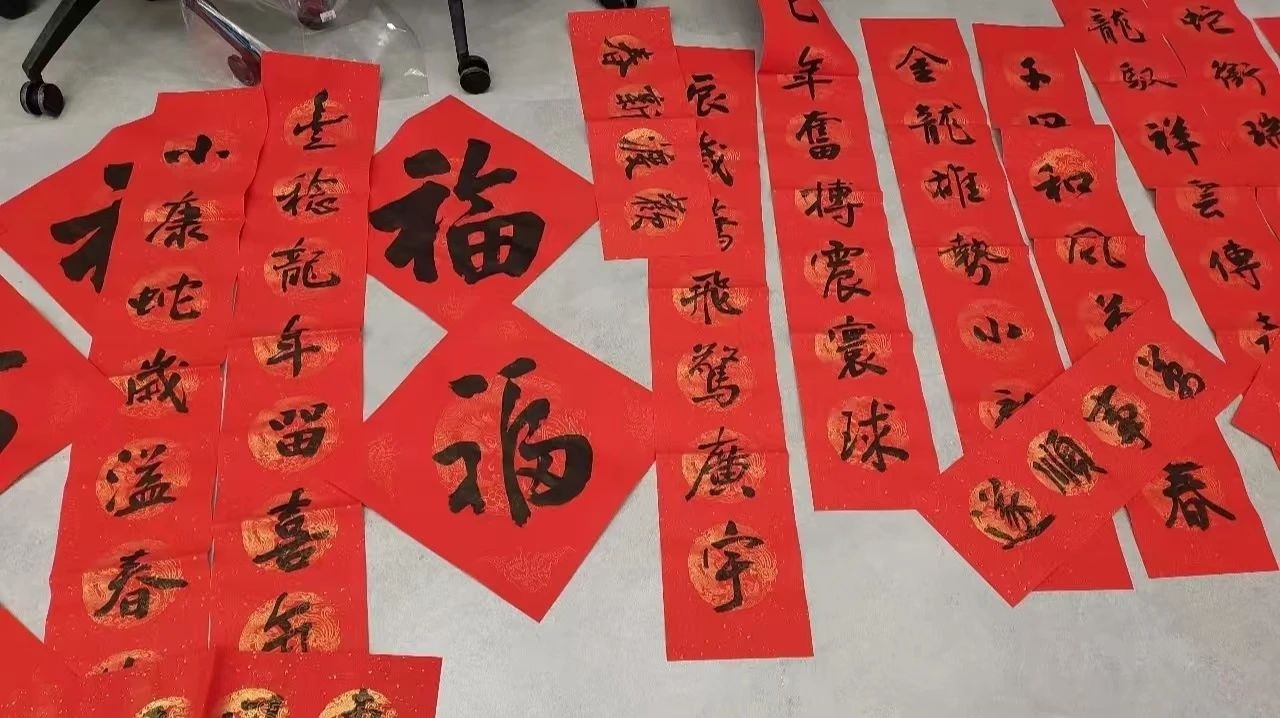 小康蛇歲溢春
丰稔龍年留喜
福
福
辰歲
飛驚廣宇
年奮搏震寰球
金龍雄勢小
和風
萬事順遂
春
龍馭祥雲傳
蛇銜瑞